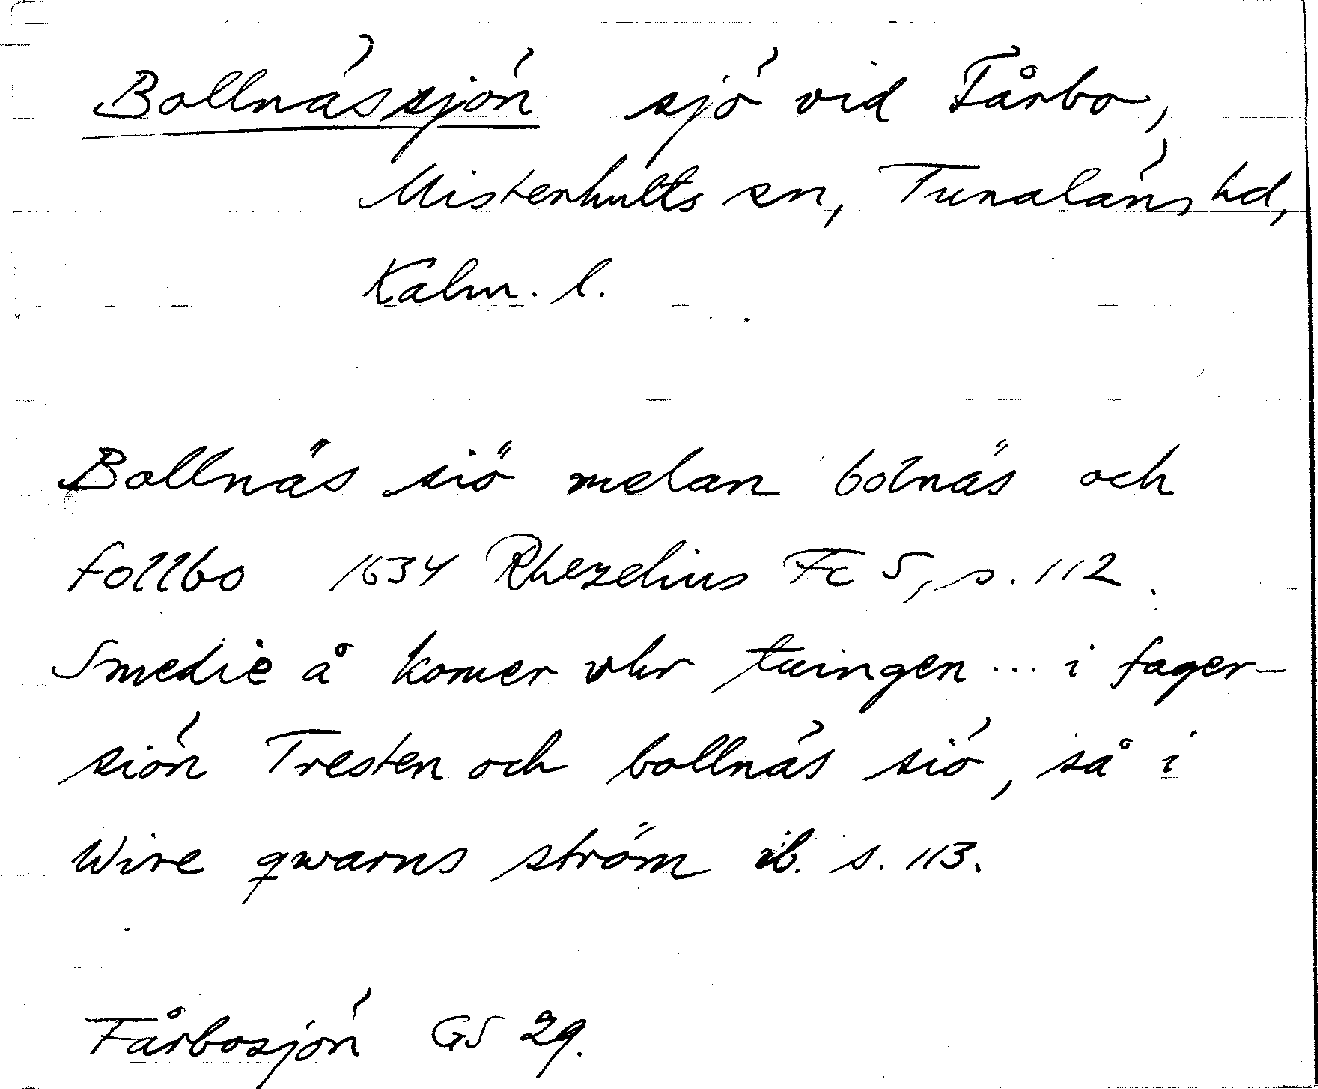 Bollnässjön sjö vid Fårbo,
Misterhults sn, Tunaläns hd,
Kalm. l.
Bollnäs siö melan bolnäs och
follbo 1634 Rhezelius Fc 5, s. 112.
Smedie å komer vhr tuingen... i fager-
siön Tresten och bollnäs siö, så i
Wire qwarns ström ib. s. 113.
Fårbosjön GS 29.